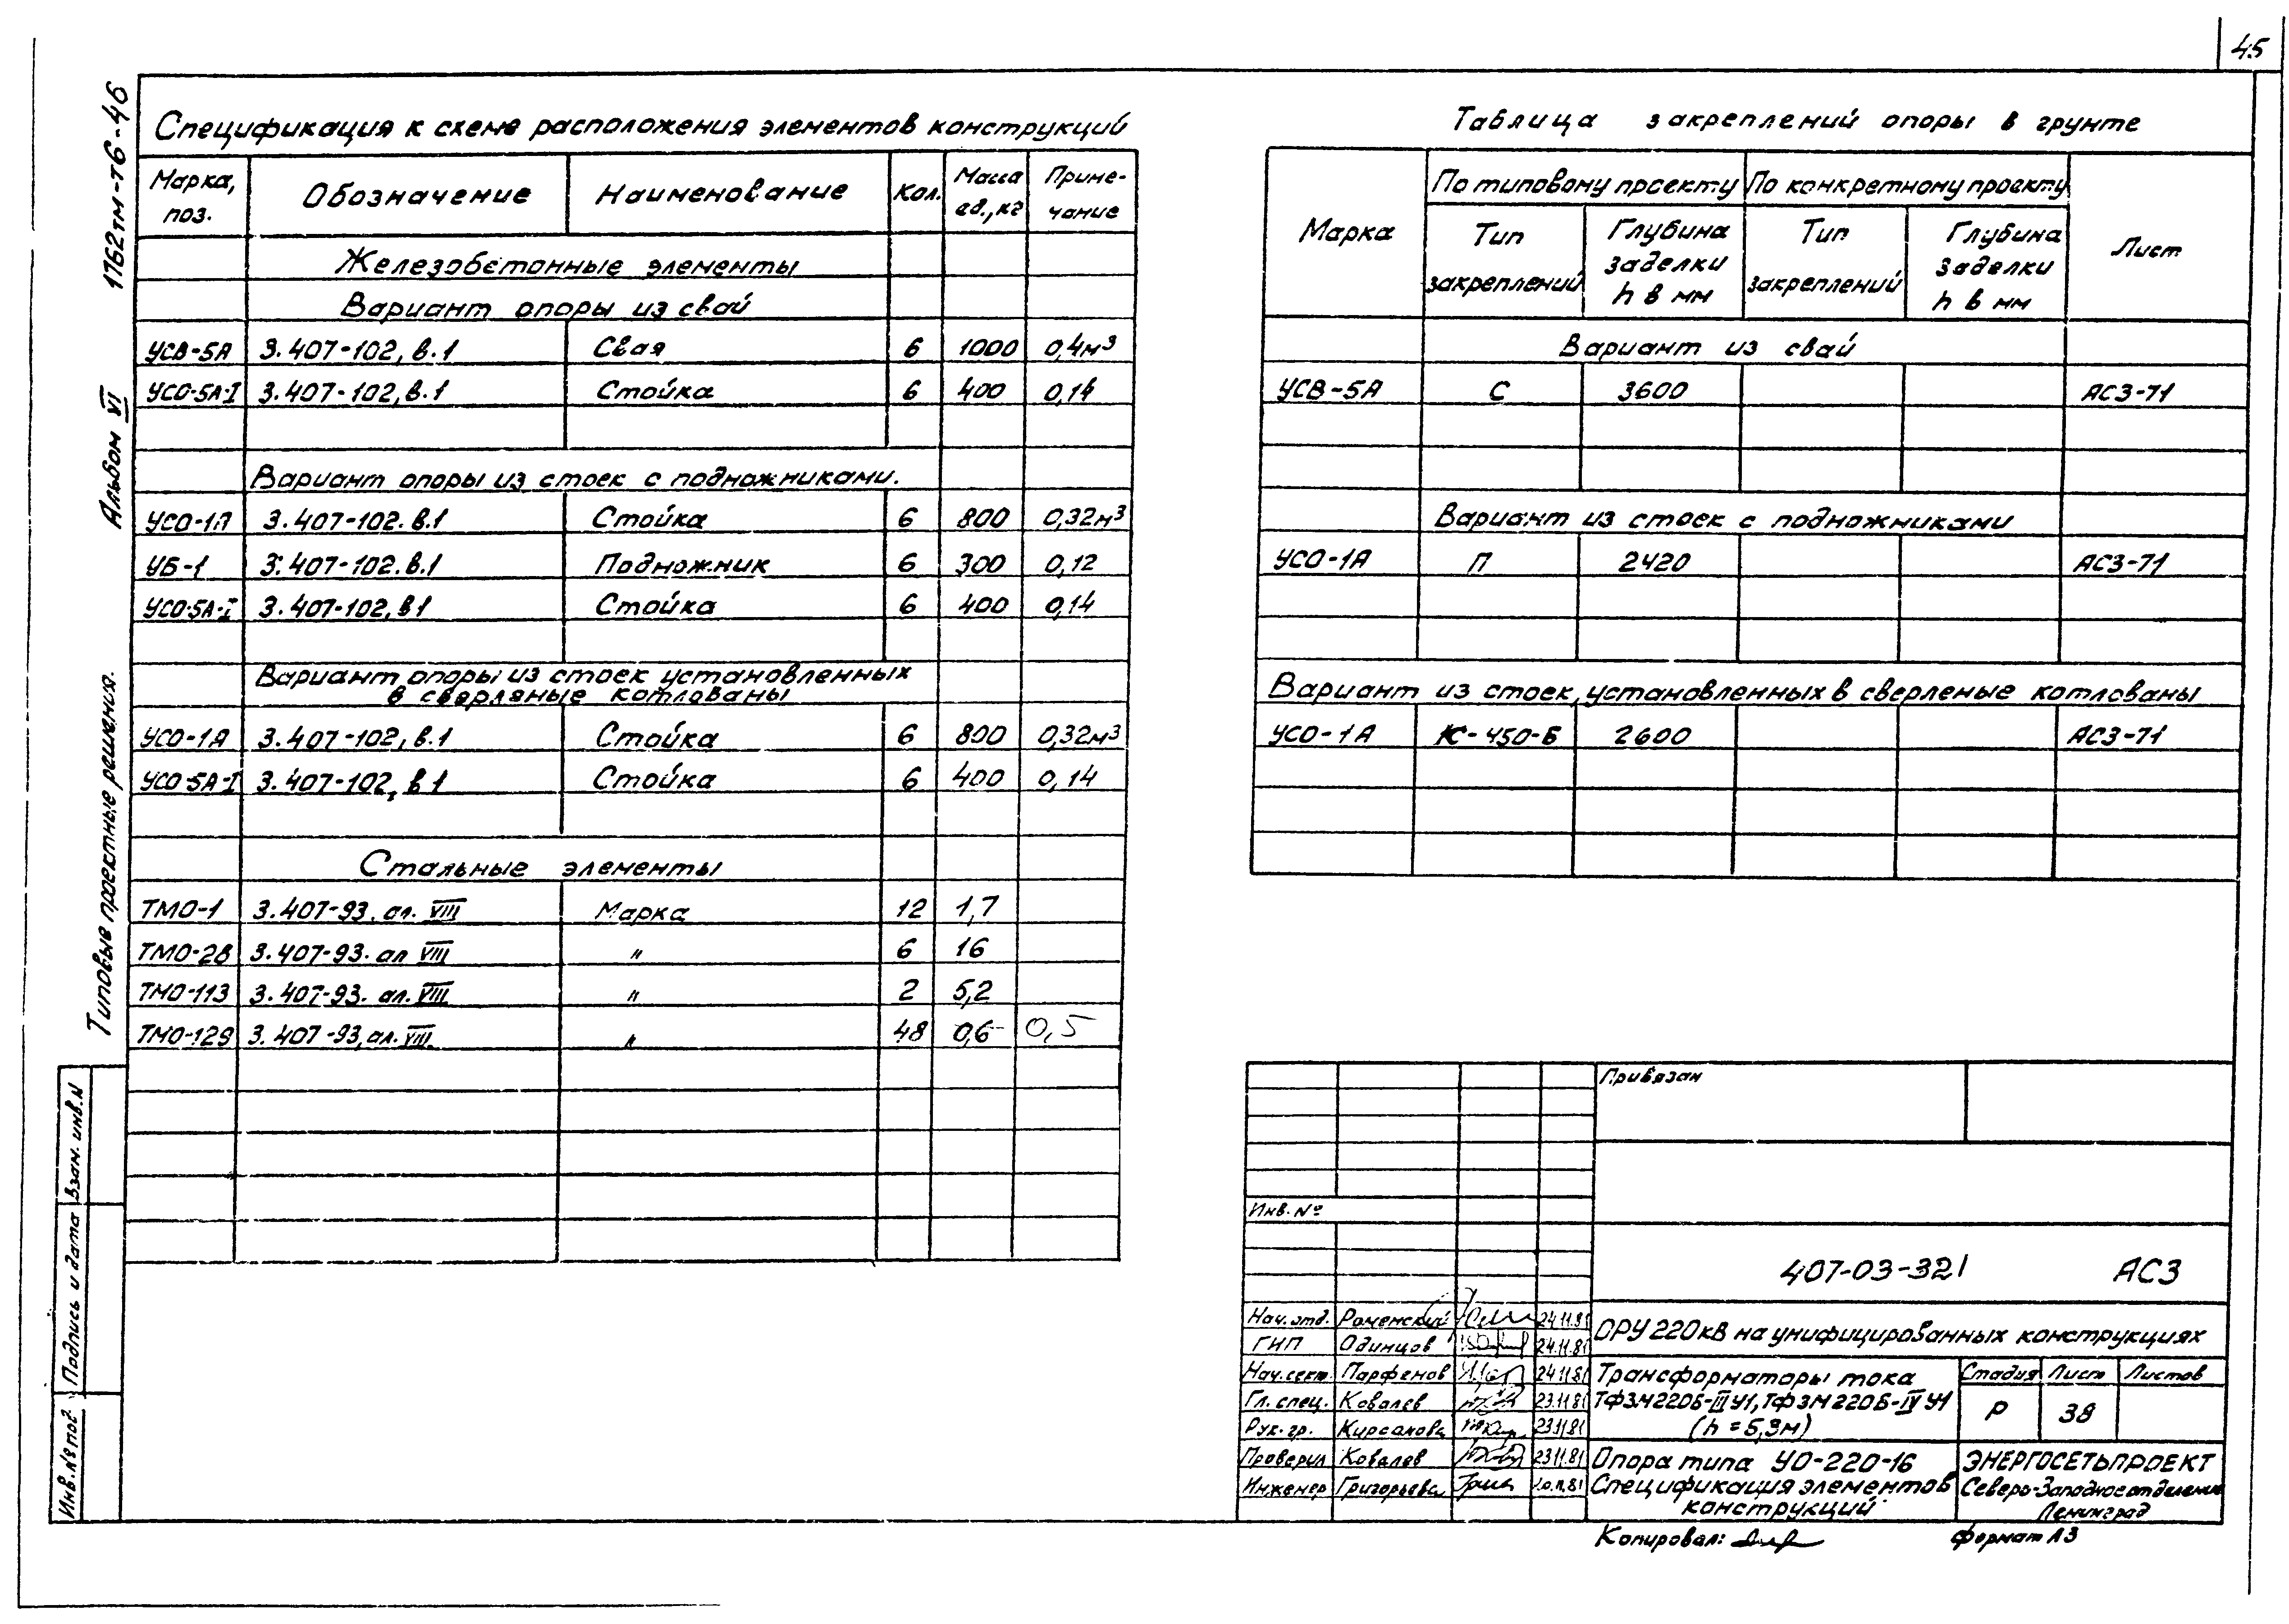 45
1762тм-т6-46
Альбом VI
Типовые проектные решения.
Взам. инв. N
Подпись и дата
Инв. № под.
Спецификация к схеме расположения элементов конструкций
Марка, поз. Обозначение Наименование Кол. Масса ед., кг Примечание
Железобетонные элементы
Вариант опоры из свай
УСВ-5А 3.407-102, в.1 Свая 6 1000 0,4м³
УСО-5А-I 3.407-102, в.1 Стойка 6 400 0,14
Вариант опоры из стоек с подножниками.
УСО-1А 3.407-102. в.1 Стойка 6 800 0,32м³
УБ-1 3.407-102. в.1 Подножник 6 300 0,12
УСО-5А-I 3.407-102, в1 Стойка 6 400 0,14
Вариант опоры из стоек установленных
в сверляные котлованы
УСО-1А 3.407-102, в.1 Стойка 6 800 0,32м³
УСО-5А-I 3.407-102, в1 Стойка 6 400 0,14
Стальные элементы
ТМО-1 3.407-93. ал. VIII Марка 12 1,7
ТМО-28 3.407-93. ал VIII " 6 16
ТМО-113 3.407-93. ал. VIII " 2 5,2
ТМО-129 3.407-93, ал. VIII " 48 0,6 0,5
Таблица закреплений опоры в грунте
Марка По типовому проекту По конкретному проекту Лист
Тип закреплений Глубина заделки h в мм Тип закреплений Глубина заделки h в мм
Вариант из свай
УСВ-5А С 3600 АС3-71
Вариант из стоек с подножниками
УСО-1А П 2420 АС3-71
Вариант из стоек, установленных в сверленые котлованы
УСО-1А К-450-Б 2600 АС3-71
Привязан
Инв. №
407-03-321 АС3
Нач. отд. Роменский 24.11.81
ГИП Одинцов 24.11.81
Нач. сект. Парфенов 24.11.81
Гл. спец. Ковалев 23.11.81
Рук. гр. Кирсанова 23.11.81
Проверил Ковалев 23.11.81
Инженер Григорьева
ОРУ 220кВ на унифицированных конструкциях
Трансформаторы тока
ТФЗМ220Б-III У1, ТФЗМ220Б-IV У1
(h = 5,3м)
Стадия Лист Листов
Р 38
Опора типа УО-220-16
Спецификация элементов
конструкций
ЭНЕРГОСЕТЬПРОЕКТ
Северо-Западное отделение
Ленинград
Копировал:
формат А3